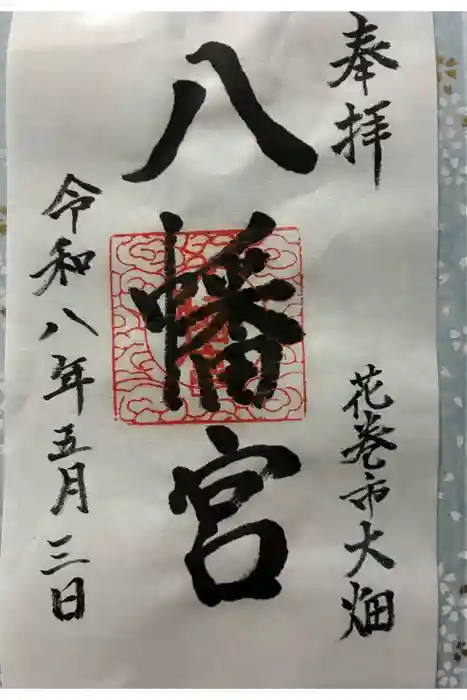 奉拝
花巻市大畑
八幡宮
令和八年五月三日